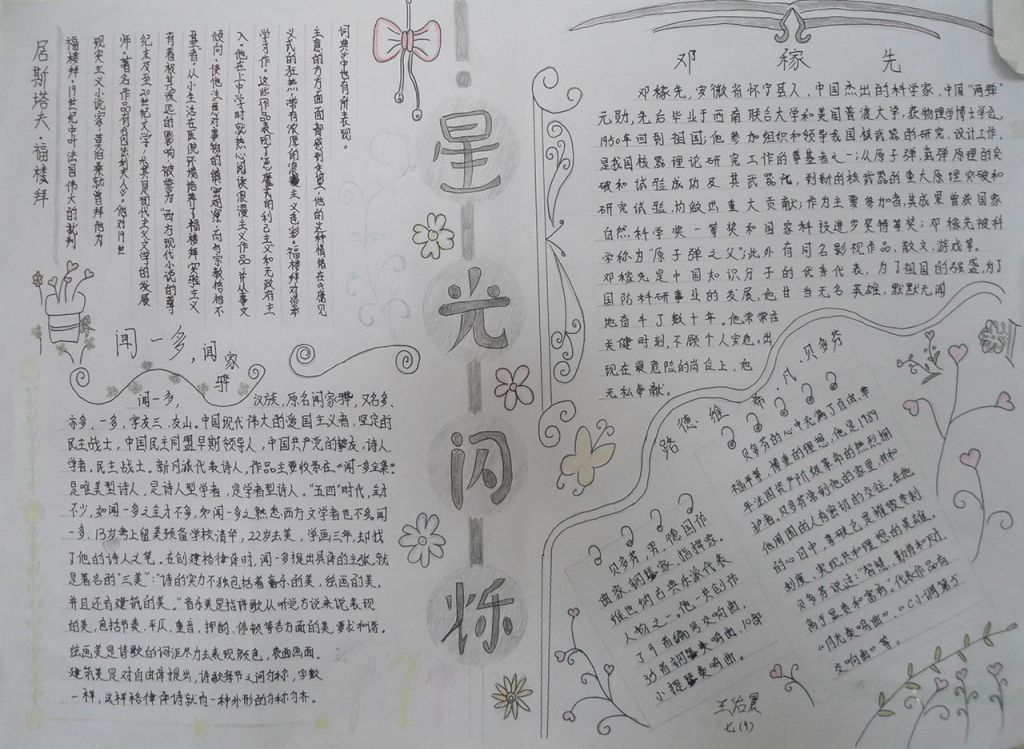 居斯塔夫·福楼拜
福楼拜,19世纪中叶法国伟大的批判
现实主义小说家,莫泊桑就曾拜他为
师。著名作品有《包法利夫人》。他对19世
纪末及至20世纪文学,尤其是现代主义文学的发展
有着极其深远的影响,被誉为"西方现代小说的奠
基者"。从小生活在医院环境培养了福楼拜实验主义
倾向,使他注意对事物的缜密观察,而与宗教格格不
入。他在上中学时就热心阅读浪漫主义作品,并从事文
学习作,这些作品表现了恶魔式的利己主义和无政府主
义式的狂热,带有浓厚的浪漫主义色彩。福楼拜对资本
主义的方方面面都感到失望,他的这种情绪在《庸见
词典》中也有所表现。
星光闪烁
闻一多,闻家骅
闻一多, 汉族,原名闻家骅,又名多、
亦多、一多,字友三、友山。中国现代伟大的爱国主义者,坚定的
民主战士,中国民主同盟早期领导人,中国共产党的挚友,诗人
学者,民主战士。新月派代表诗人,作品主要收录在《闻一多全集》
是唯美型诗人,是诗人型学者,是学者型诗人。"五四"时代,全才
不少,如闻一多之全才不多,知闻一多之熟悉西方文学者也不多。闻
一多,13岁考上留美预备学校清华,22岁去美,学画三年,却找
了他的诗人之笔。在创建格律体时,闻一多提出具体的主张,就
是著名的"三美":"诗的实力不独包括着音乐的美,绘画的美,
并且还有建筑的美。"音乐美是指诗歌从听觉方说来说表现
的美,包括节奏、平仄、重音、押韵、停顿等各方面的美,要求和谐。
绘画美是诗歌的词汇尽力去表现颜色,表画画面,
建筑美是对自由体提出,诗歌每节之间匀称,字数
一样,这样格律体诗就有一种外形的匀称均齐。
邓稼先
邓稼先,安徽省怀宁县人,中国杰出的科学家,中国"两弹"
元勋,先后毕业于西南联合大学和美国普渡大学,获物理学博士学位。
1950年回到祖国;他参加组织和领导我国核武器的研究、设计工作,
是我国核器理论研究工作的奠基者之一;从原子弹,氢弹原理的突
破和试验成功及其武器化,到新的核武器的重大原理突破和
研究试验,均做出重大贡献;作为主要参加者,其成果曾获国家
自然科学奖一等奖和国家科技进步奖特等奖;邓稼先被科
学称为"原子弹之父";此外有同名影视作品,散文,游戏等。
邓稼先是中国知识分子的优秀代表,为了祖国的强盛,为了
国防科研事业的发展,他甘当无名英雄,默默无闻
地奋斗了数十年。他常常在
关健时刻,不顾个人安危,出
现在最危险的岗位上,他
无私奉献。
路德维希·凡·贝多芬
贝多芬,男,德国作
曲家、钢琴家、指挥家。
维也纳古典乐派代表
人物之一。他一共创作
了9首编号交响曲,
35首钢琴奏鸣曲,10部
小提琴奏鸣曲。
贝多芬的心中充满了自由、幸
福平等、博爱的理想,他是1789
年法国资产阶级革命的热烈拥
护者。贝多芬
他周围的人有密切的交往。在他
的心目中,
制度,实现共和理想的英雄。
贝多芬说过:"智慧,勤劳和
高于显贵和富有。"代表作品有
"月光奏鸣曲"、"C小调第五
交响曲"等。
七(9)